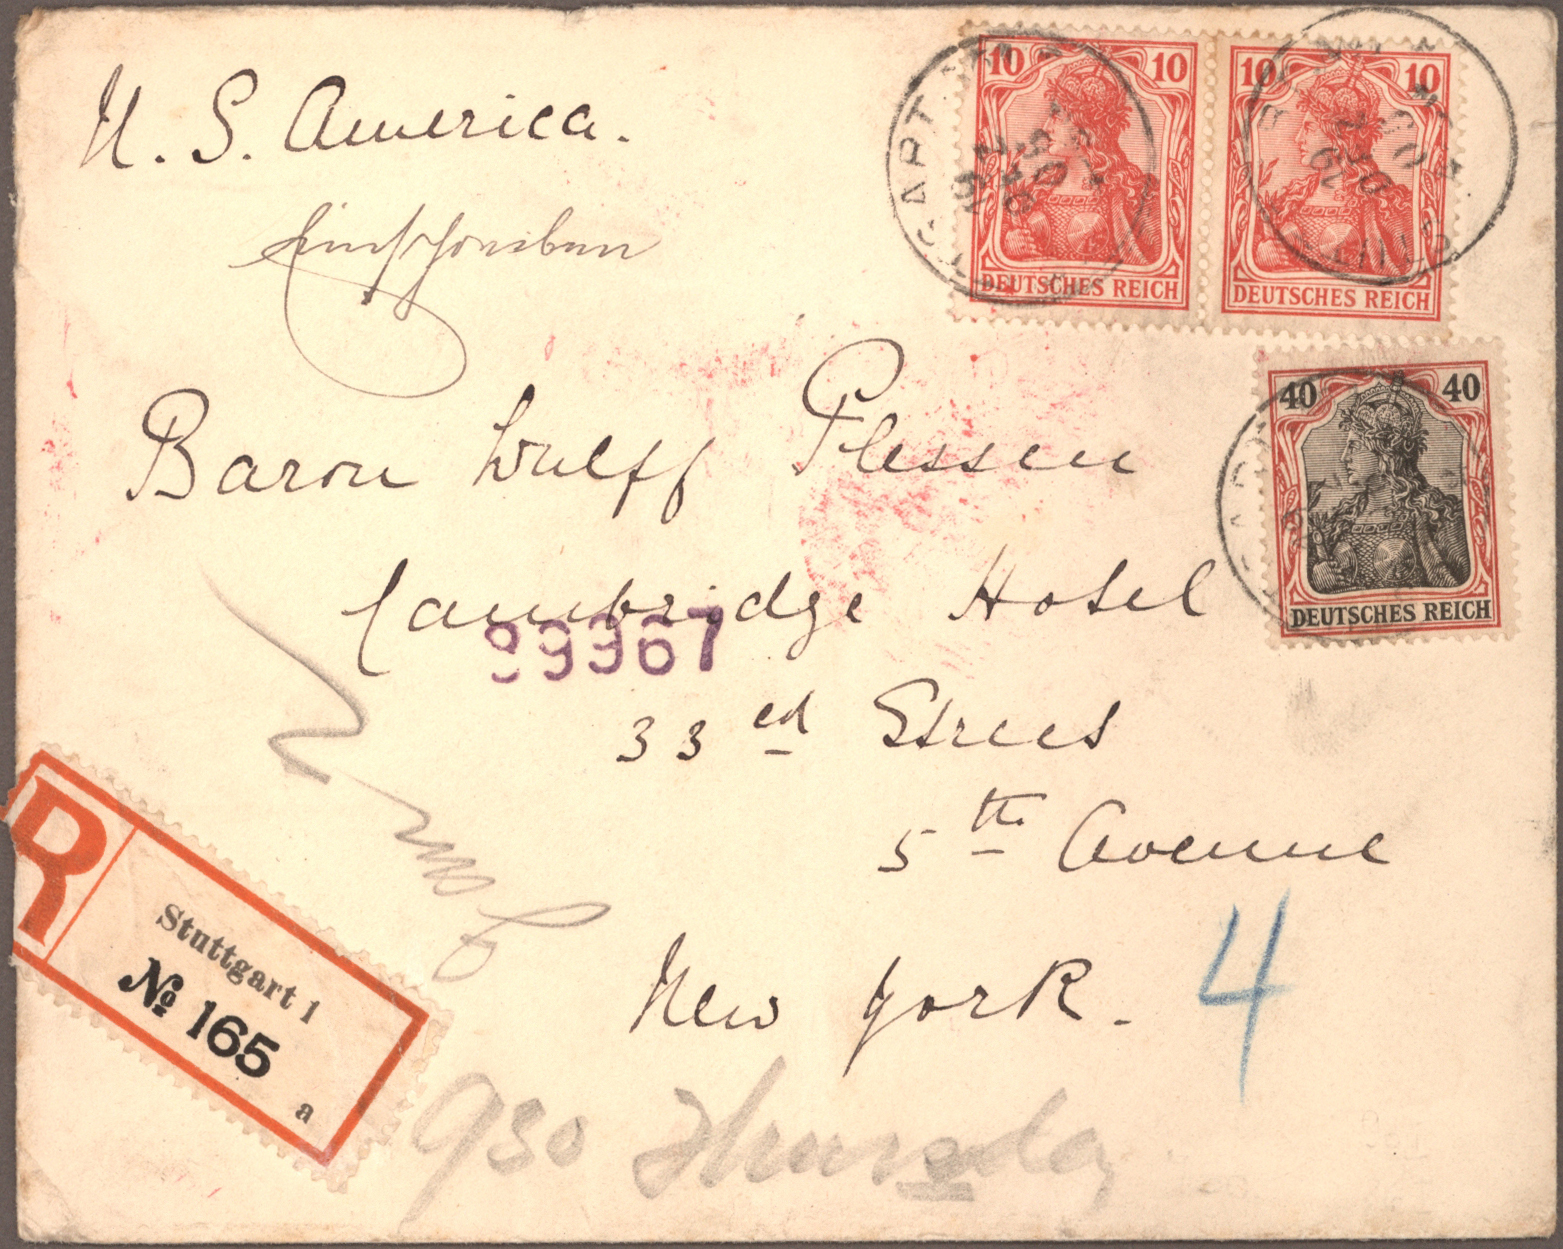 U. S. America.
Einschreiben
10 10
DEUTSCHES REICH
10 10
DEUTSCHES REICH
40 40
DEUTSCHES REICH
Baron Wulff Plessen
Cambridge Hotel
99367
33 ed Street
5 th Avenue
New York.
4
R
Stuttgart 1
№ 165
a
930 Thursday